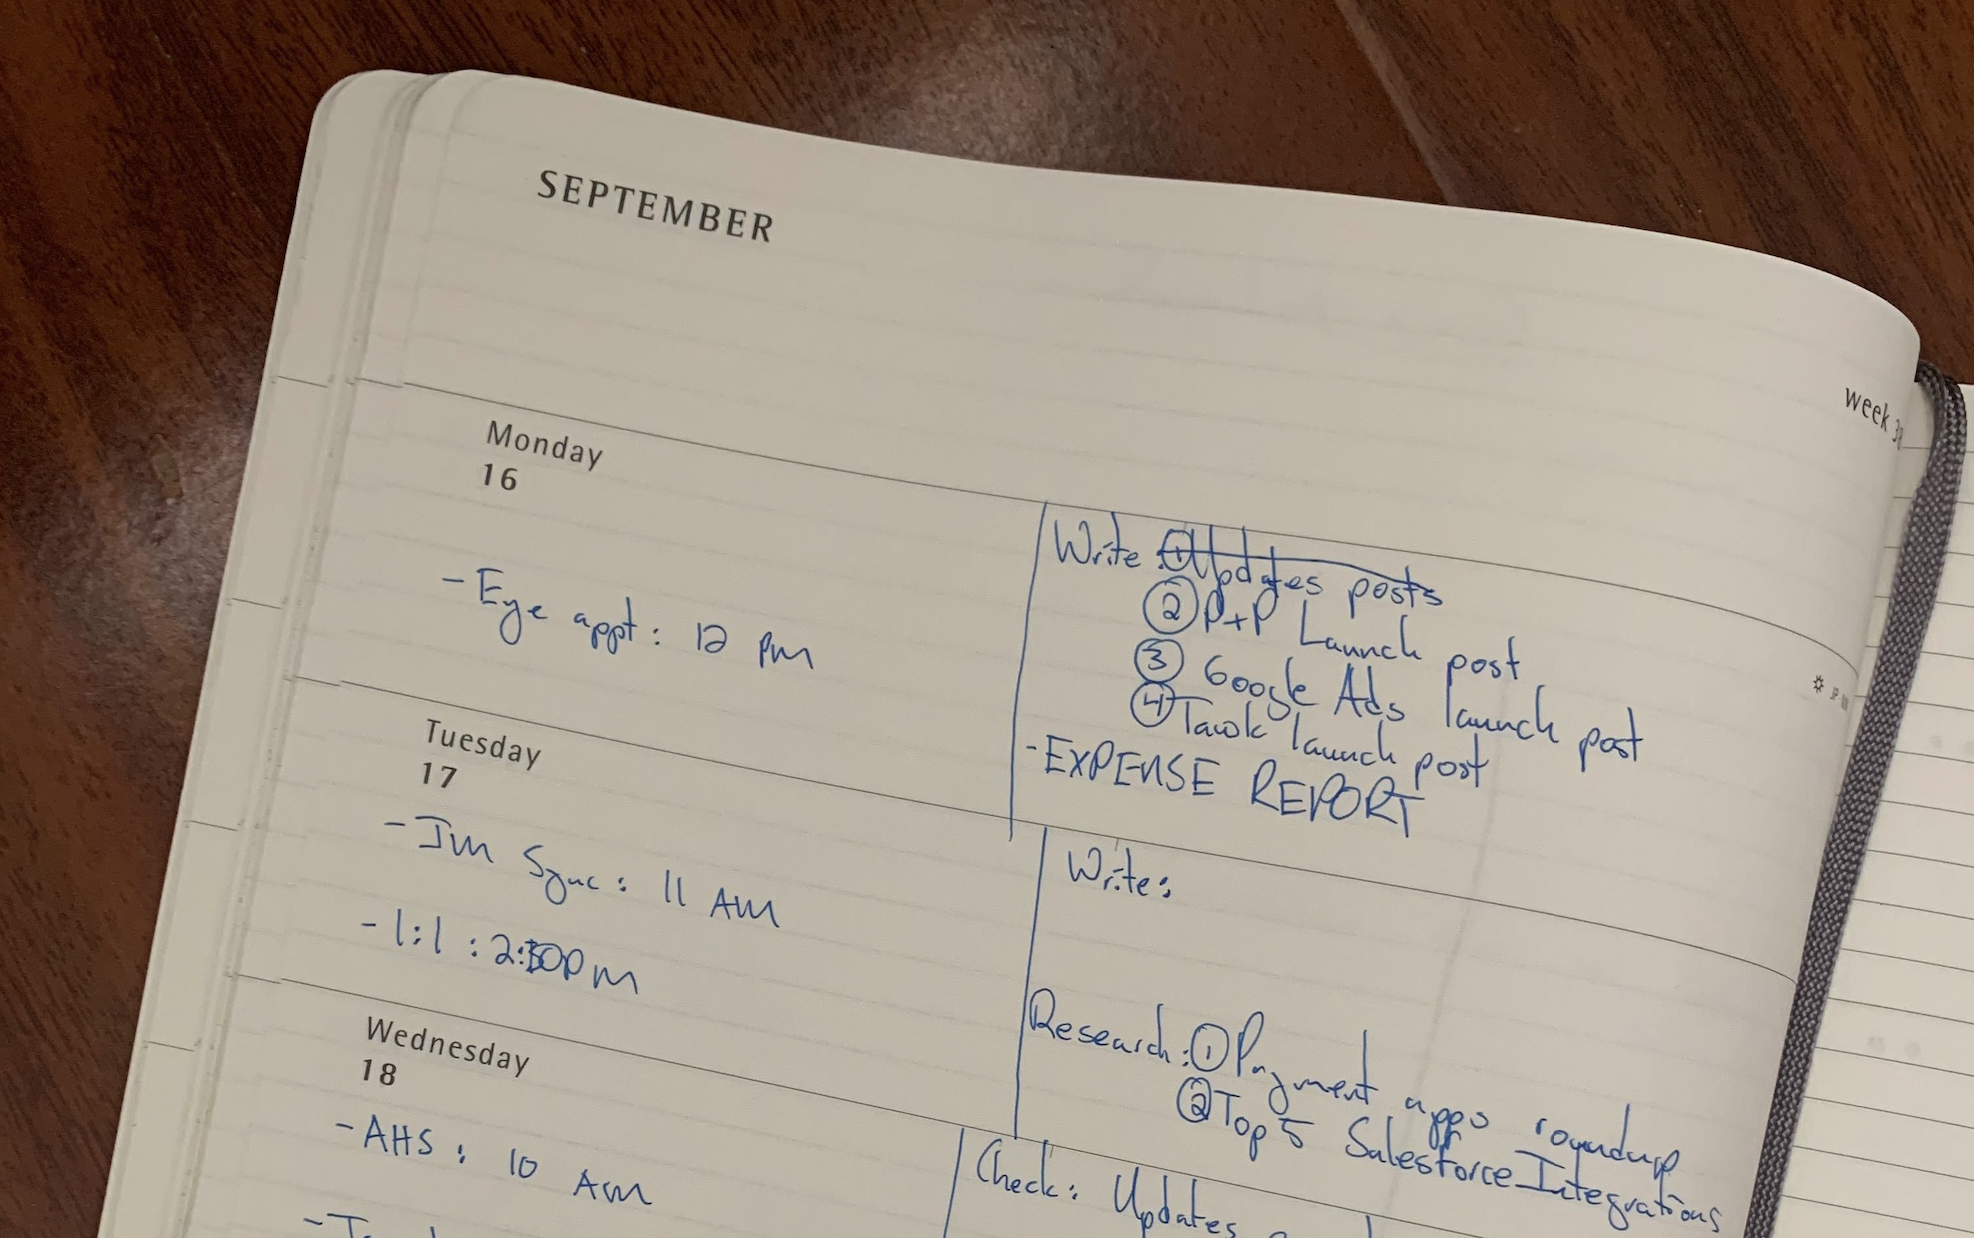 SEPTEMBER
week
Monday
16
- Eye appt: 12 pm
Write: ① Updates posts
② P+P Launch post
③ Google Ads launch post
④ Tawk launch post
- EXPENSE REPORT
Tuesday
17
- Sync: 11 AM
- 1:1 : PM
Write:
Research: ① Payment apps roundup
② Top 5 Salesforce Integrations
Wednesday
18
- AHS: 10 AM
Check: Updates